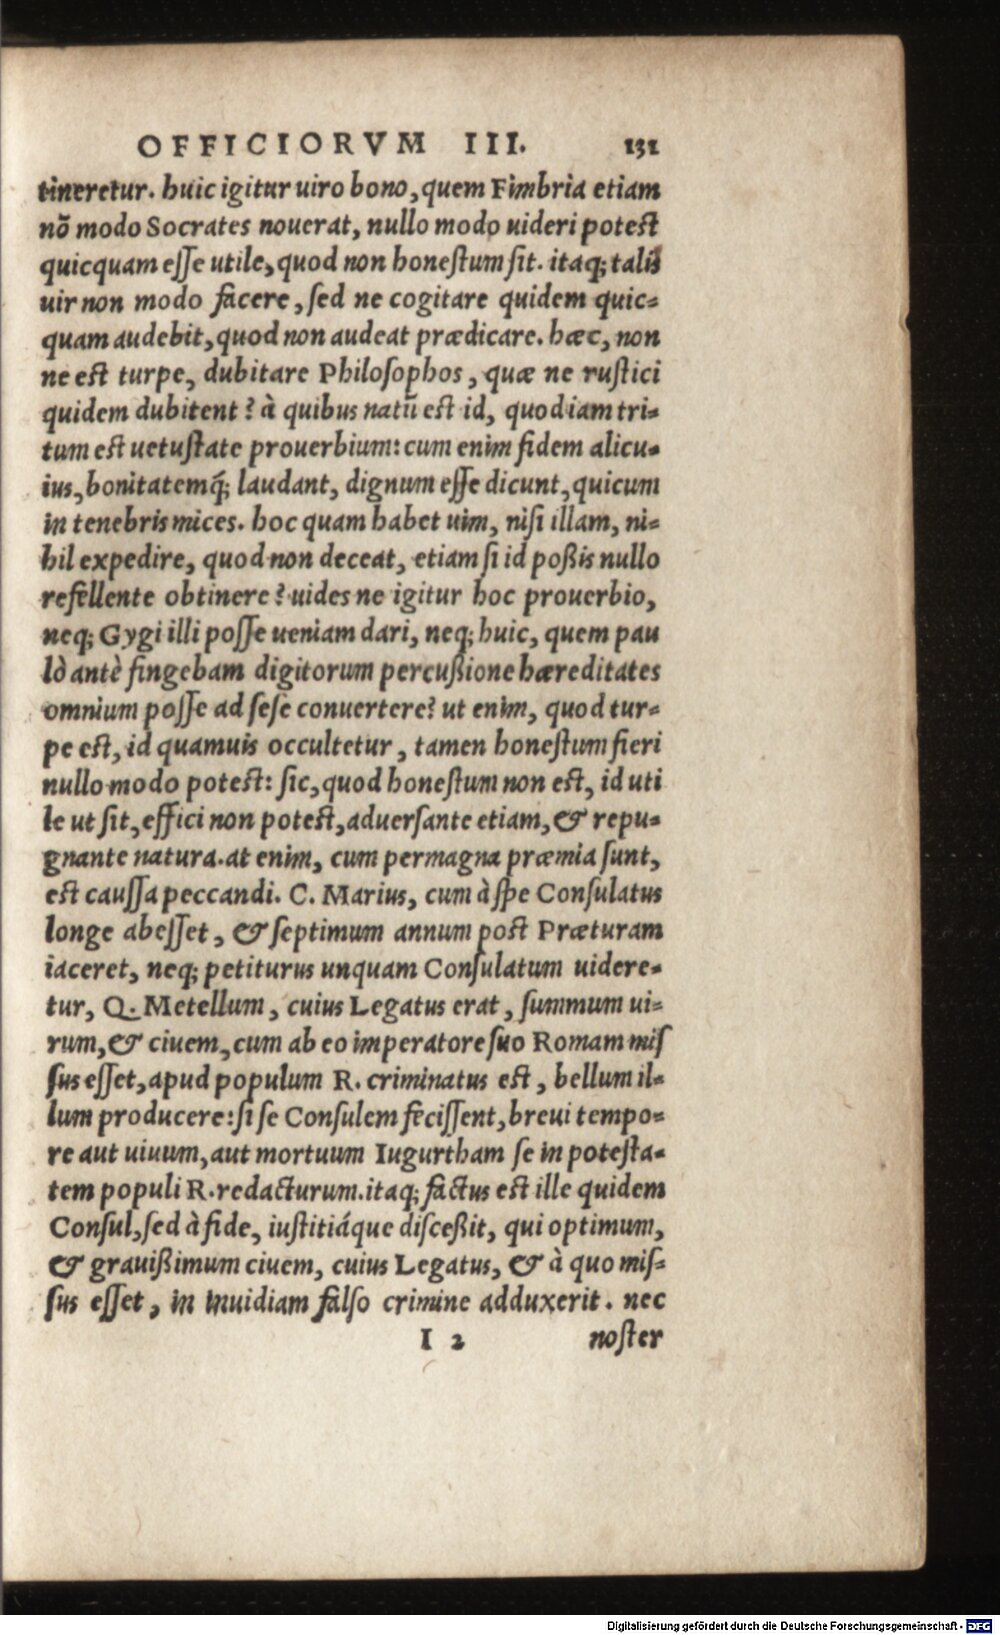 OFFICIORVM III. 131
tineretur. huic igitur uiro bono, quem Fimbria etiam
nõ modo Socrates nouerat, nullo modo uideri potest
quicquam esse utile, quod non honestum sit. itaq; talis
uir non modo facere, sed ne cogitare quidem quic-
quam audebit, quod non audeat prædicare. hæc, non
ne est turpe, dubitare Philosophos, quæ ne rustici
quidem dubitent? à quibus natū est id, quod iam tri-
tum est uetustate prouerbium: cum enim fidem alicu-
ius, bonitatemq́; laudant, dignum esse dicunt, quicum
in tenebris mices. hoc quam habet uim, nisi illam, ni-
hil expedire, quod non deceat, etiam si id poßis nullo
refellente obtinere? uides ne igitur hoc prouerbio,
neq; Gygi illi posse ueniam dari, neq; huic, quem pau
lò antè fingebam digitorum percußione hæreditates
omnium posse ad sese conuertere? ut enim, quod tur-
pe est, id quamuis occultetur, tamen honestum fieri
nullo modo potest: sic, quod honestum non est, id uti
le ut sit, effici non potest, aduersante etiam, & repu-
gnante natura. at enim, cum permagna præmia sunt,
est caussa peccandi. C. Marius, cum à spe Consulatus
longe abesset, & septimum annum post Præturam
iaceret, neq; petiturus unquam Consulatum uidere-
tur, Q. Metellum, cuius Legatus erat, summum ui-
rum, & ciuem, cum ab eo imperatore suo Romam mis
sus esset, apud populum R. criminatus est, bellum il-
lum producere: si se Consulem fecissent, breui tempo-
re aut uiuum, aut mortuum Iugurtham se in potesta-
tem populi R. redacturum. itaq; factus est ille quidem
Consul, sed à fide, iustitiáque disceßit, qui optimum,
& grauißimum ciuem, cuius Legatus, & à quo mis-
sus esset, in inuidiam falso crimine adduxerit. nec
I 2 noster
Digitalisierung gefördert durch die Deutsche Forschungsgemeinschaft - DFG